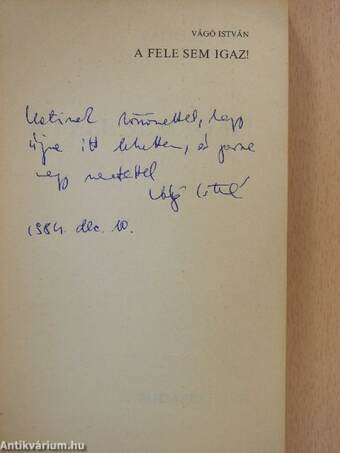 VÁGÓ ISTVÁN
A FELE SEM IGAZ!
Katinak köszönettel, hogy
újra itt lehettem, és
nagy szeretettel
Vágó István
1984. dec. 10.
Antikvárium.hu